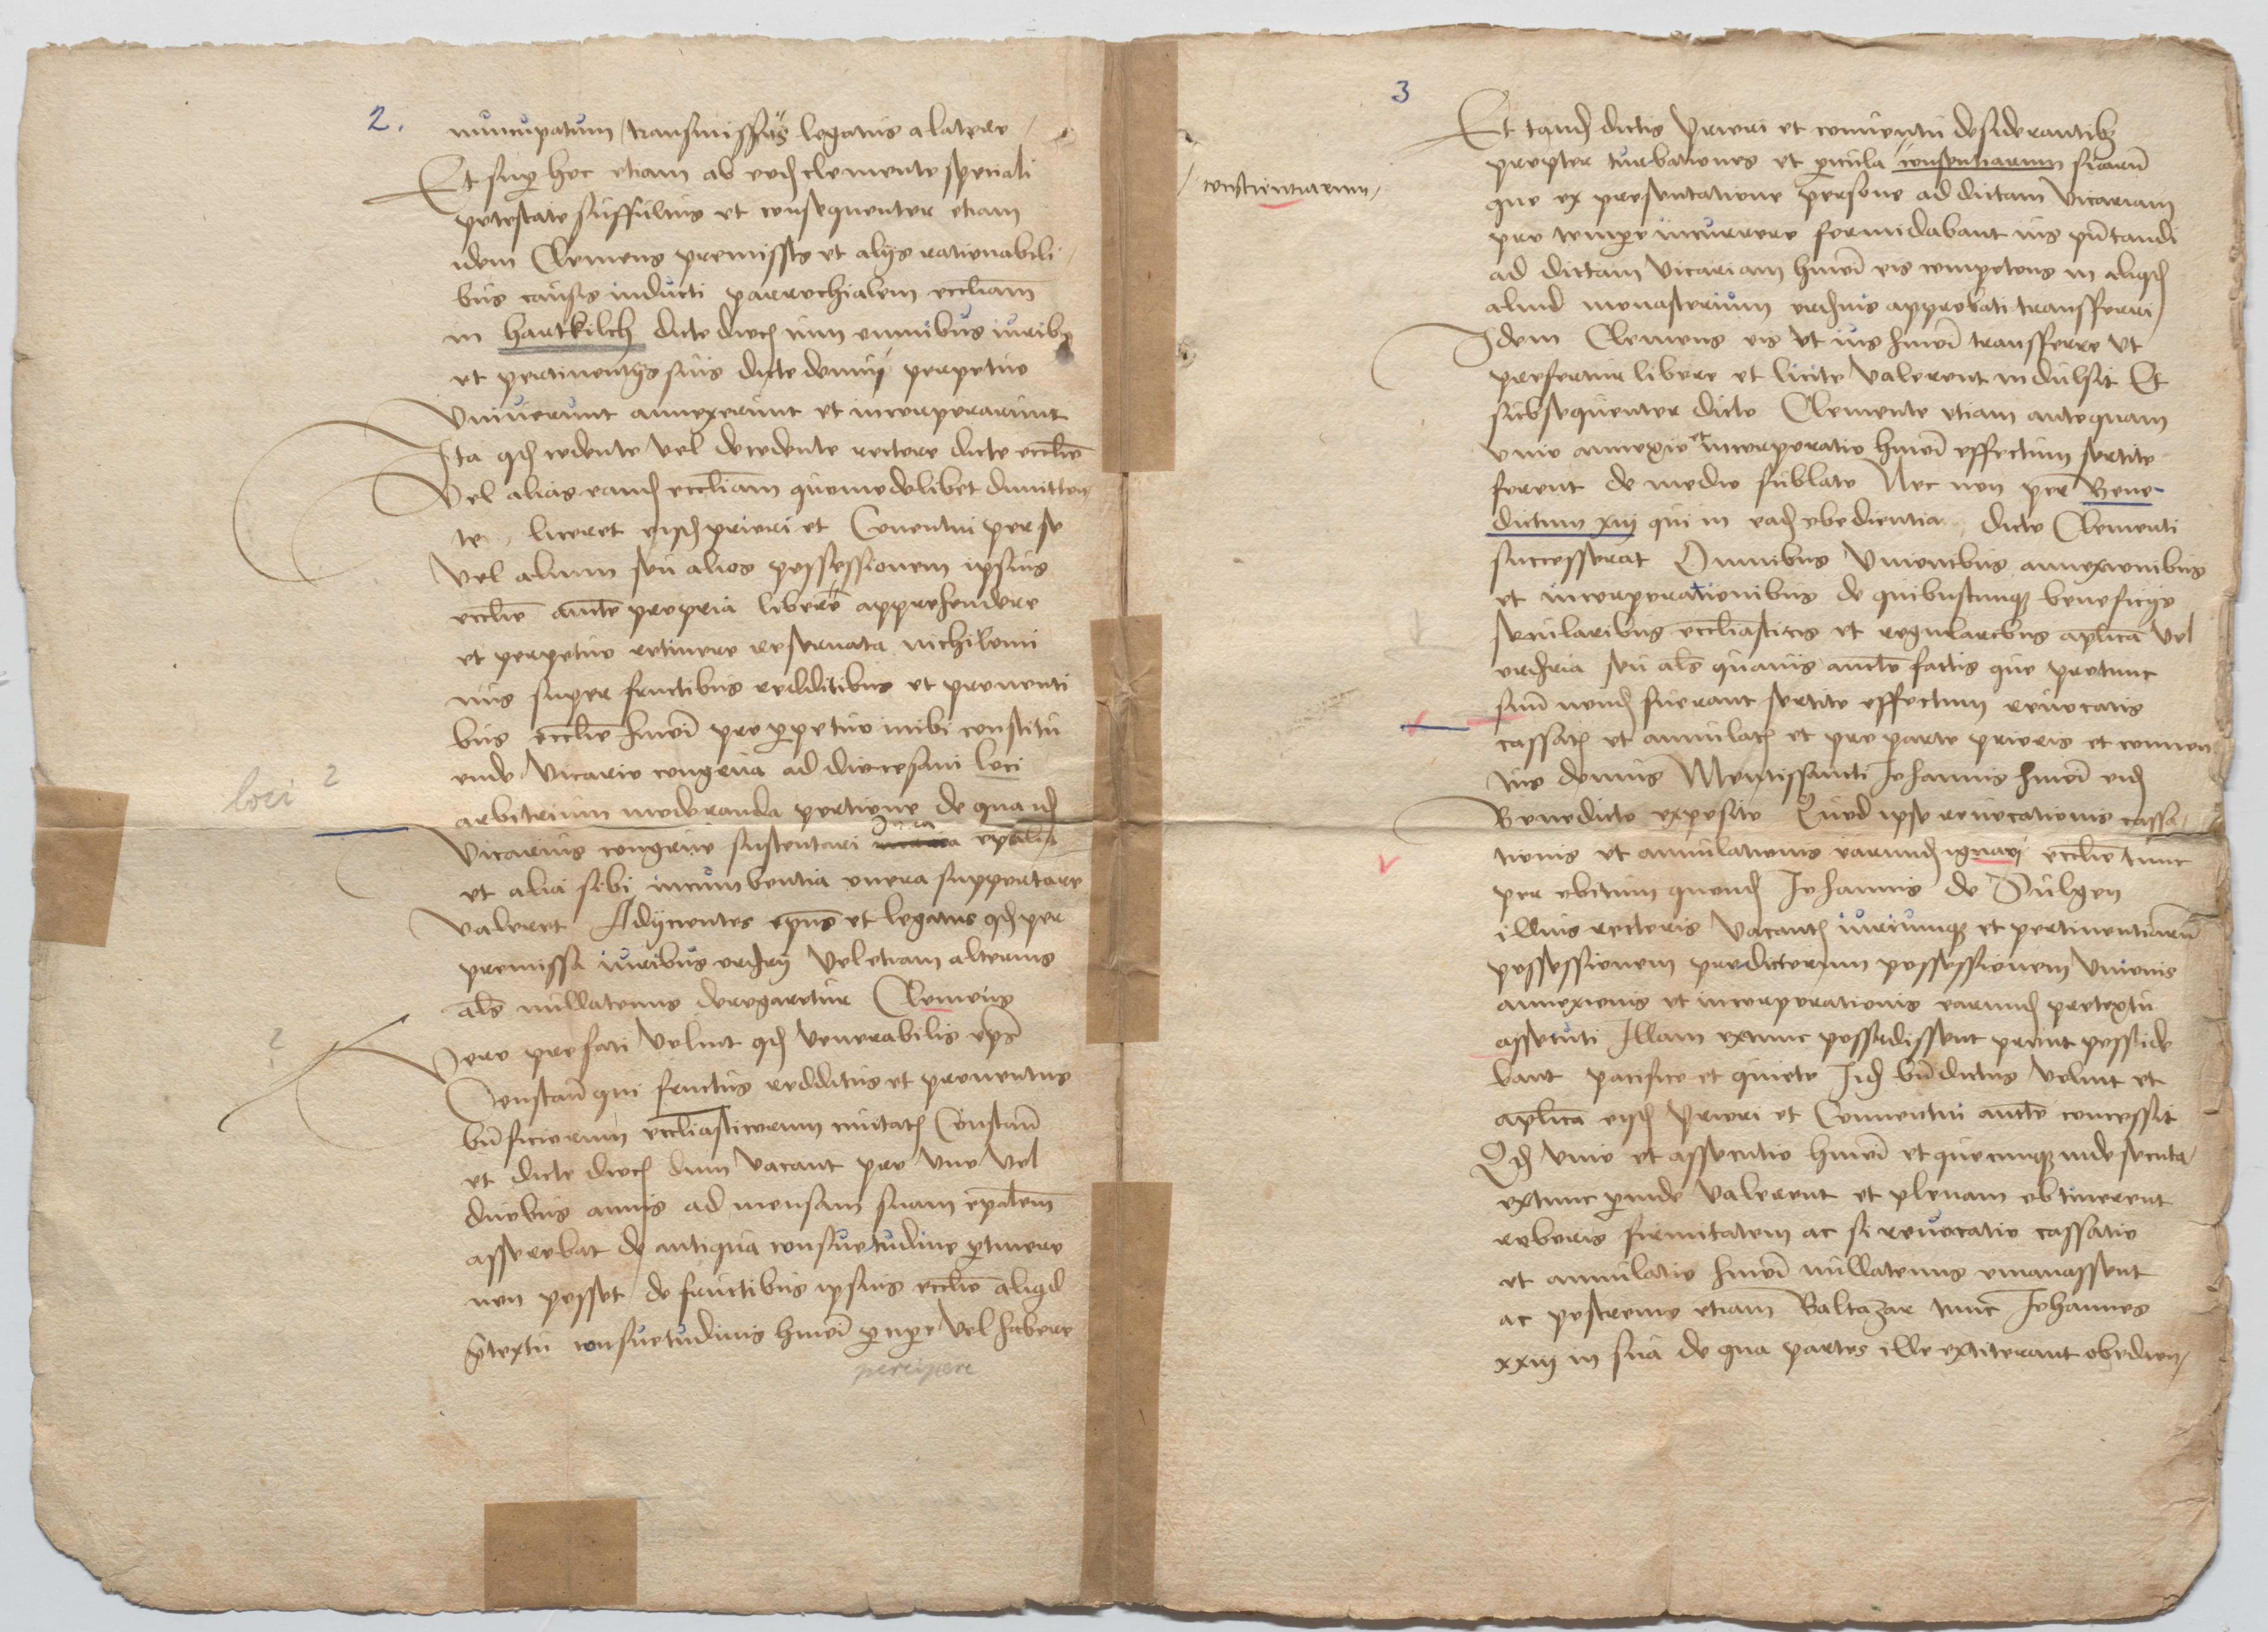 2.
nuncupatum / transmissus legatus a latere /
Et sup hoc etiam ab eod clemente speciali
potestate suffultus et consequenter etiam
idem Clemens premissis et alijs rationabili /
bus causis inducti parrochialem eccliam
in hartkilch dicte dioc cum omnibus iuribus
et pertinentijs suis dicte domui perpetuo
Univerunt annexerunt et incorporarunt
Ita qd cedente vel decedente rectore dicte ecclie
Vel alias eand eccliam quomodolibet dimitten
te / liceret eisd priori et Conventui per se
Vel alium seu alios possessionem ipsius
ecclie aucte propria libere apprehendere
et perpetuo retinere reservata nichilomi
nus super fructibus redditibus et proventi
bus ecclie hmoi pro ppetuo inibi constitu
endo vicario congrua ad diocesani loci
loci ?
arbitrium moderanda portione de qua id
Vicarius congrue sustentari Iura epalia
et alia sibi incumbentia onera supportare
valeret Adijcientes epus et legatus qd per
premissa iuribus ordrij vel etiam alterius
als nullatenus derogaretur Clemens
?
Vero prefati velint qd venerabilis eps
Constan qui fructus redditus et proventus
bnficiorum eccliasticorum civitat Constan
et dicte dioc dum vacant pro uno vel
duobus annis ad mensam suam epalem
asserebat de antiqua consuetudine ptinere
non posset de fructibus ipsius ecclie aliqd
ptextu consuetudinis hmoi pcipe vel habere
percipere
3
Et tand dictis Priori et conventu desiderantib
propter turbationes et picula consentiarum suaru
/ conscientiarum /
que ex presentatione persone ad dictam vicariam
pro tempe incurrere formidabant ius pntandi
ad dictam vicariam hmoi eis competens in aliqd
aliud monasterium ordinis approbati transferri
Idem Clemens eis ut ius hmoi transferre ut
prefertur libere et licite valerent indulsit Et
subsequenter dicto Clemente etiam antequam
unio annexio et incorporatio hmoi effectum sortite
forent de medio sublato Nec non per Bene-
dictum xiij qui in ead obedientia dicto Clementi
successerat Omnibus Unionibus annexionibus
et incorporationibus de quibuscunq beneficijs
secularibus eccliasticis et regularibus aplica vel
ordria seu als quavis aucte factis que protunc
suu nond fuerant sortite effectum revocatis
cassat et annulat et pro parte prioris et conven
tus domus Montissancti Johannis hmoi eid
Benedicto exposito Quod ipse revocationis cassa /
tionis et annulationis earund ignari ecclie tunc
per obitum quond Johannis de Sulgen
illius rectoris vacant iuriumq et pertinentiaru
possessionem predictorum possessionem Unionis
annexionis et incorporationis earund pretextu
assecuti Illam extunc possedissent prout posside
bant pacifice et quiete Jid bndictus voluit et
aplica eisd Priori et Conventui aucte concessit
Qd unio et assecutio hmoi et quecunq inde secuta /
extunc pinde valerent et plenam obtinerent
roboris firmitatem ac si revocatio cassatio
et annulatio hmoi nullatenus emanassent
ac postremo etiam Baltazar tunc Johannes
xxiij in sua de qua partes ille extiterant obedien /